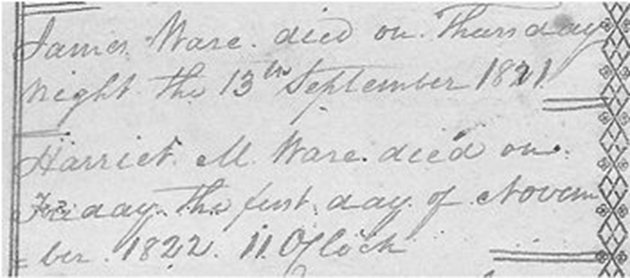 James Ware. died on Thursday
night the 13th September 1821.
Harriet M. Ware. died on.
Friday. the first day of Novem
= ber. 1822. 11 O,Clock